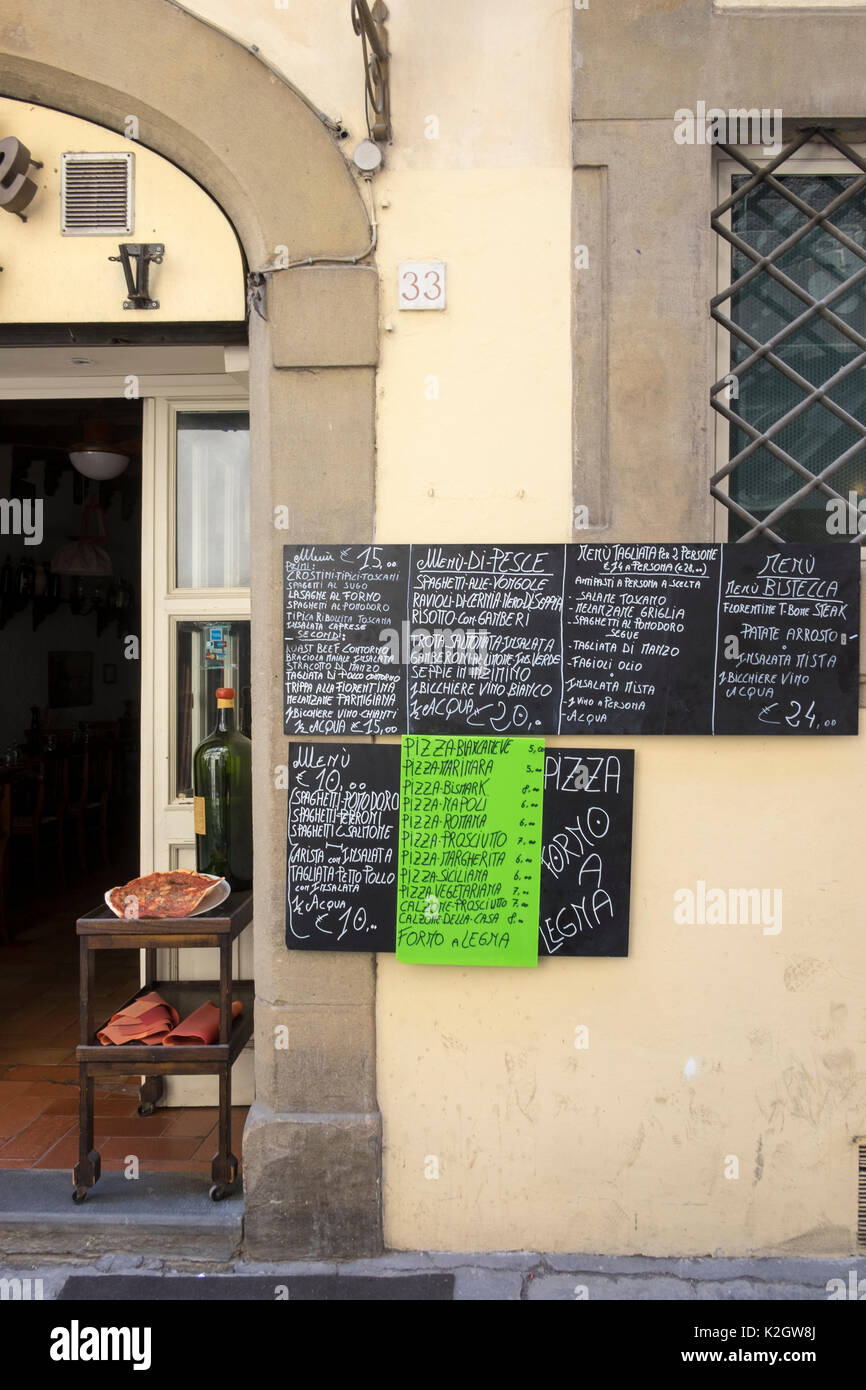 33
MENÙ € 15,00
PRIMI:
CROSTINI TIPICI TOSCANI
SPAGHETTI AL SUGO
LASAGNE AL FORNO
SPAGHETTI AL POMODORO
TIPICA RIBOLLITA TOSCANA
INSALATA CAPRESE
SECONDI:
ROAST BEEF CONTORNO
BRACIOLA MAIALE INSALATA
STRACOTTO DI MANZO
TAGLIATA DI POLLO CONTORNO
TRIPPA ALLA FIORENTINA
MELANZANE PARMIGIANA
1 BICCHIERE VINO CHIANTI
½ ACQUA € 15,00
MENÙ-DI-PESCE
SPAGHETTI-ALLE-VONGOLE
RAVIOLI-DI-CERNIA-NERO-DI-SEPPIA
RISOTTO CON GAMBERI
TROTA SALMONATA INSALATA
GAMBERONI AL LIMONE INS. VERDE
SEPPIE IN INZIMINO
1 BICCHIERE VINO BIANCO
½ ACQUA € 20,00
MENÙ TAGLIATA PER 2 PERSONE
€ 14 A PERSONA (€ 28,00)
ANTIPASTI A PERSONA A SCELTA
SALAME TOSCANO
MELANZANE GRIGLIA
SPAGHETTI AL POMODORO
SEGUE
TAGLIATA DI MANZO
FAGIOLI OLIO
INSALATA MISTA
1 VINO A PERSONA
ACQUA
MENÙ
MENÙ BISTECCA
FLORENTINE T. BONE STEAK
PATATE ARROSTO
INSALATA MISTA
1 BICCHIERE VINO
ACQUA
€ 24,00
MENÙ
€ 10,00
SPAGHETTI-POMODORO
SPAGHETTI-PEPERONI
SPAGHETTI C. SALMONE
ARISTA CON INSALATA
TAGLIATA PETTO POLLO
CON INSALATA
½ ACQUA
€ 10,00
PIZZA-BIANCANEVE 5,00
PIZZA-MARINARA 5,00
PIZZA-BISMARK 8,00
PIZZA-NAPOLI 6,00
PIZZA-ROMANA 6,00
PIZZA-PROSCIUTTO 7,00
PIZZA-MARGHERITA 6,00
PIZZA-SICILIANA 6,00
PIZZA VEGETARIANA 7,00
CALZONE-PROSCIUTTO 7,00
CALZONE DELLA CASA 8,00
FORNO A LEGNA
PIZZA
FORNO
A
LEGNA
alamy stock photo
K2GW8J
www.alamy.com